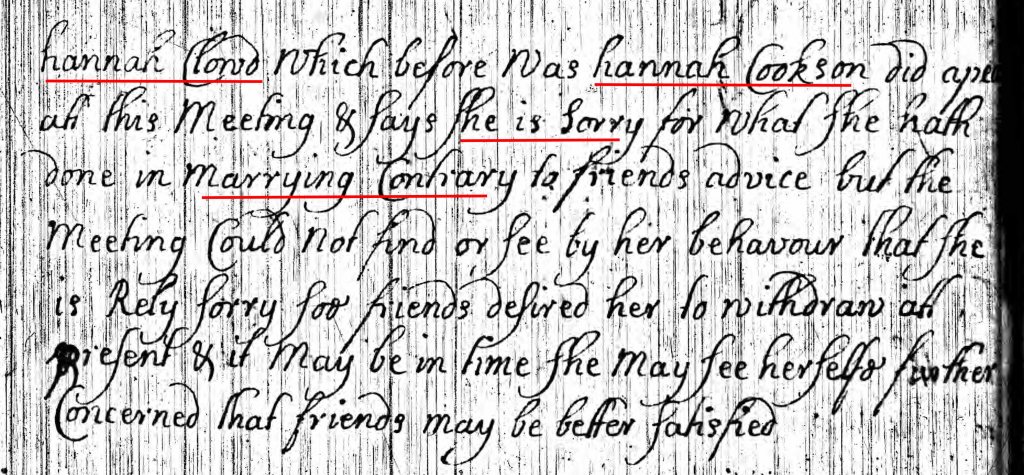 hannah Clowd Which before Was hannah Cookson did apea
att this Meeting & says she is sorry for What she hath
done in Marrying Contrary to friends advice but the
Meeting Could Not find or see by her behavour that she
is Rely sorry soe friends desired her to withdraw att
present & it May be in time she May see herselfe further
Concerned that friends may be better satisfied